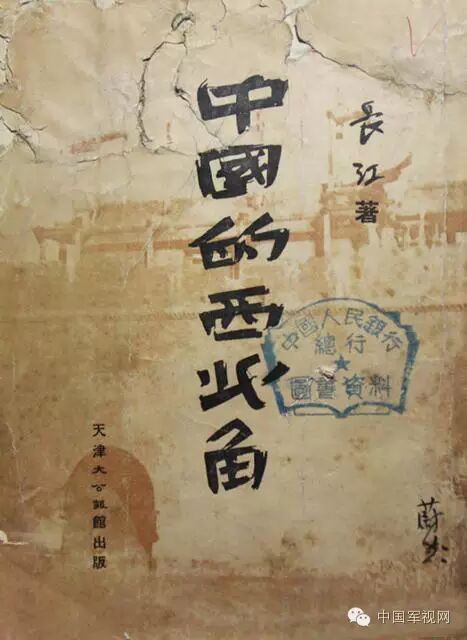 長江著
中國的西北角
中國人民銀行
總行
圖書資料
天津大公報館出版
中国军视网